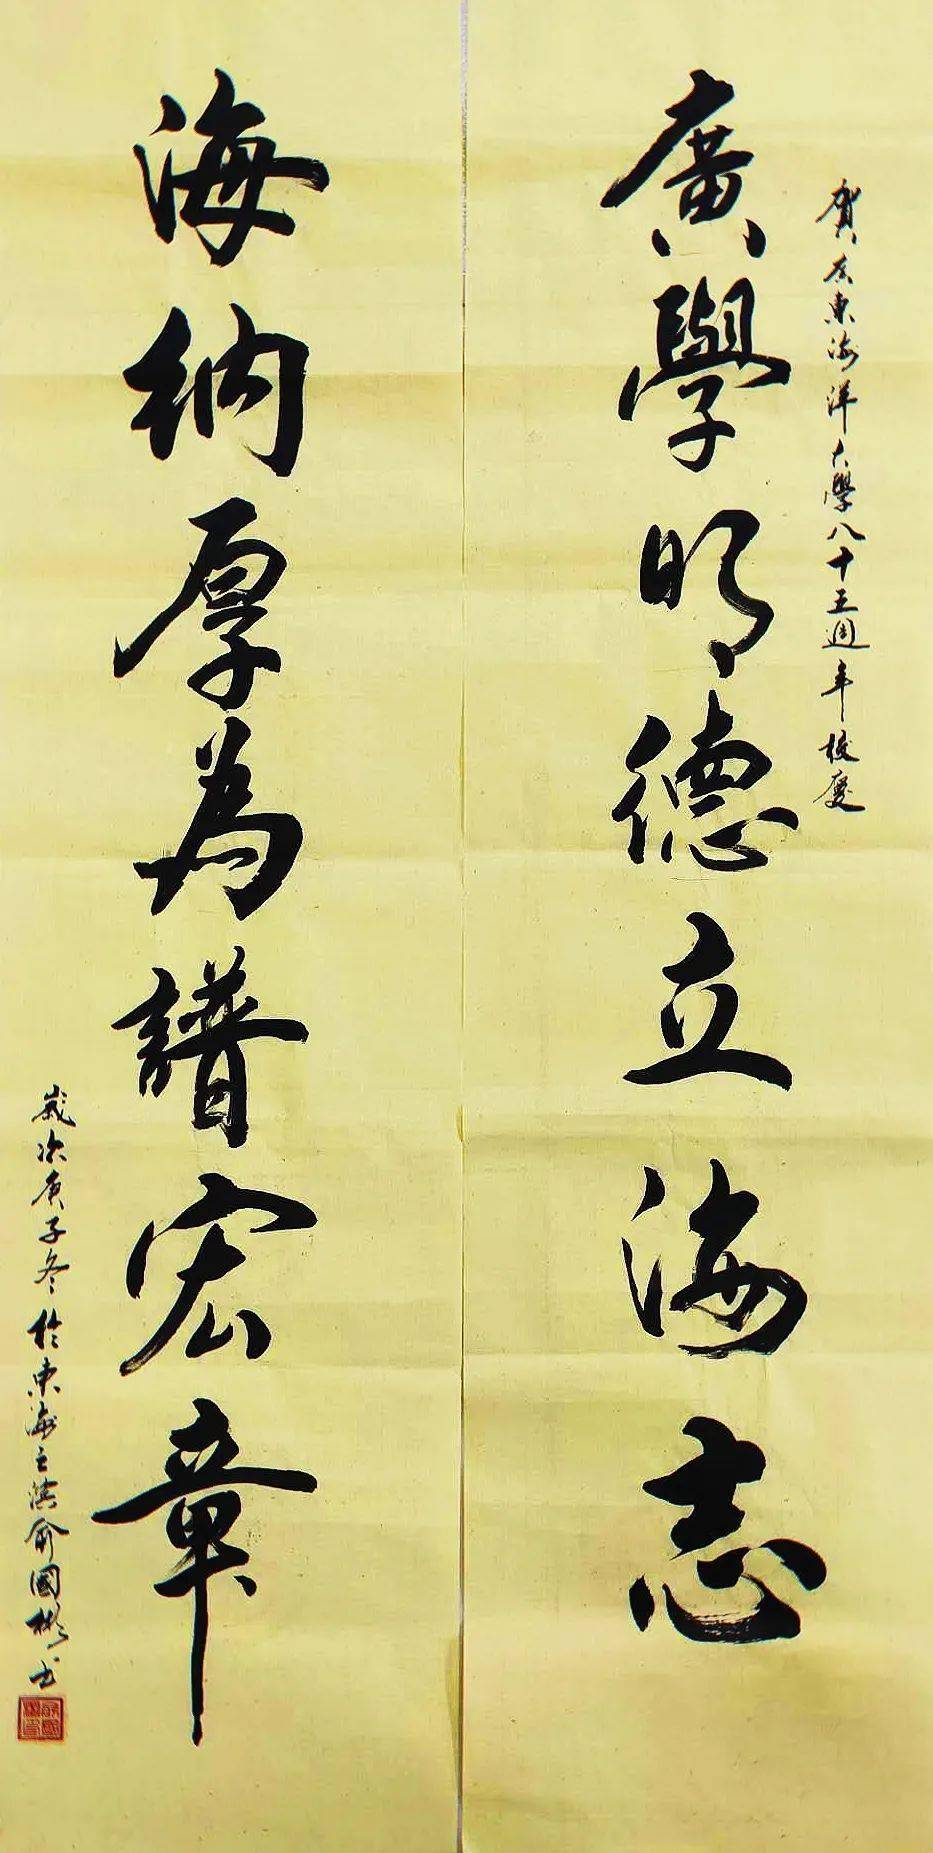 賀广东海洋大學八十五週年校慶
廣學明德立海志
海納厚為譜宏章
歲次庚子冬於東海之濱俞國彬书